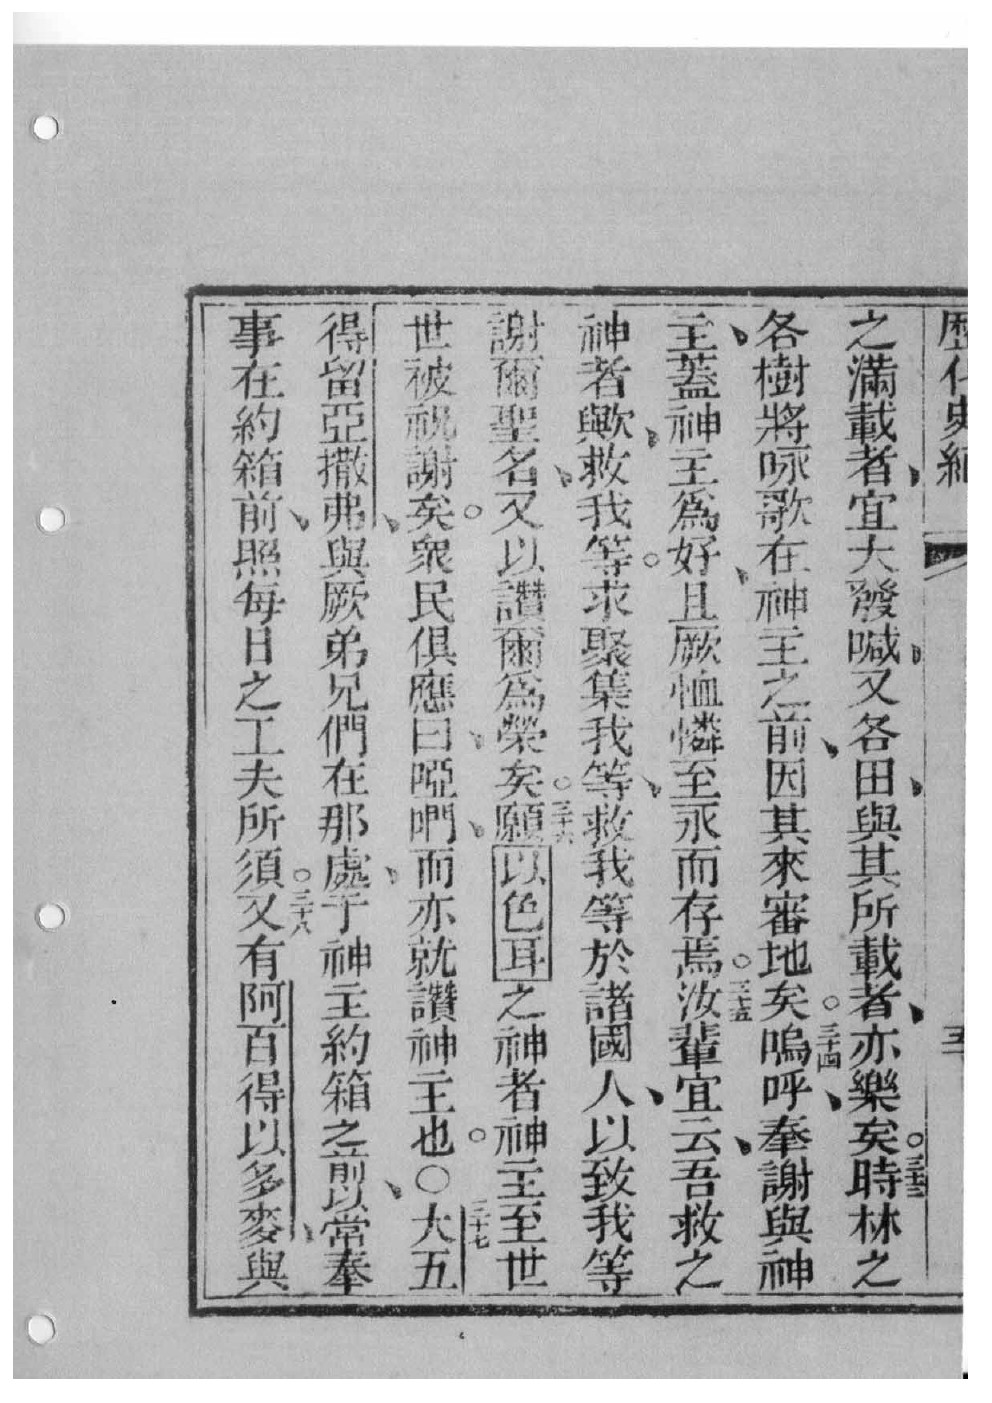 歷代史紀
五
之滿載者宜大發喊又各田與其所載者亦樂矣○三十三時林之
各樹將咏歌在神主之前因其來審地矣○三十四嗚呼奉謝與神
主蓋神主為好且厥恤憐至永而存焉○三十五汝輩宜云吾救之
神者歟救我等○求聚集我等救我等於諸國人以致我等
謝爾聖名又以讚爾為榮矣○三十六願以色耳之神者神主至世
世被祝謝矣○衆民俱應曰啞們而亦就讚神主也○○三十七大五
得留亞撒弗與厥弟兄們在那處于神主約箱之前以常奉
事在約箱前照每日之工夫所須○三十八又有阿百得以多麥與